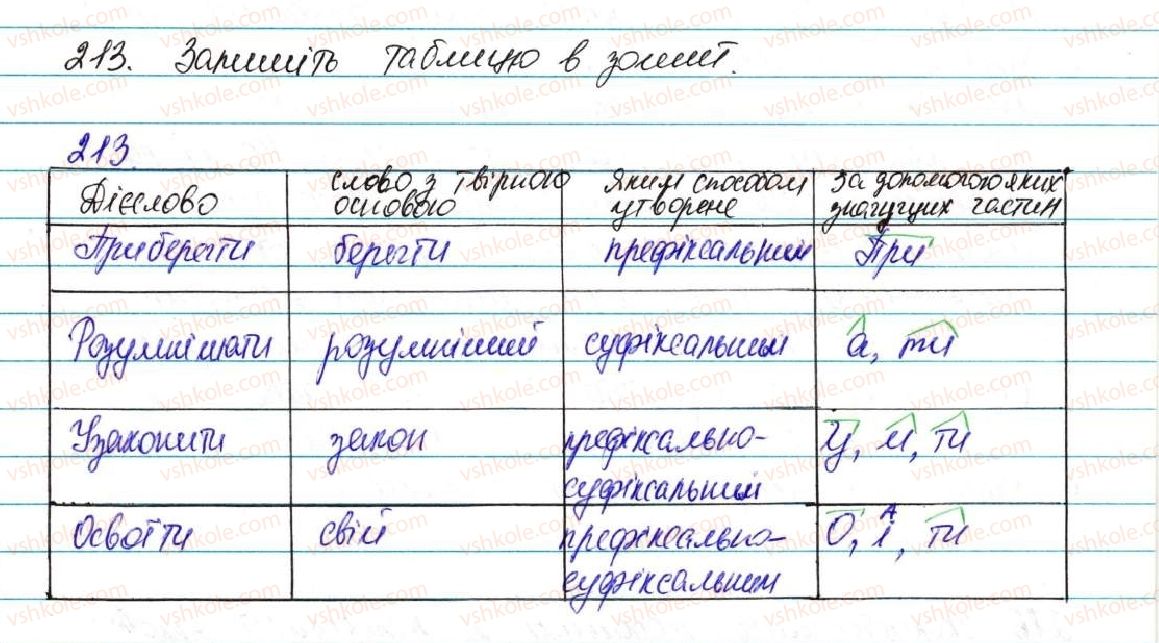 213. Запишіть таблицю в зошит.
213
Дієслово | слово з твірною основою | яким способом утворене | за допомогою яких значущих частин
Приберегти | берегти | префіксальним | при
Розумнішати | розумніший | суфіксальним | а, ти
Узаконити | закон | префіксально-суфіксальний | у, и, ти
Освоїти | свій | префіксально-суфіксальним | О, і, ти
vshkole.com